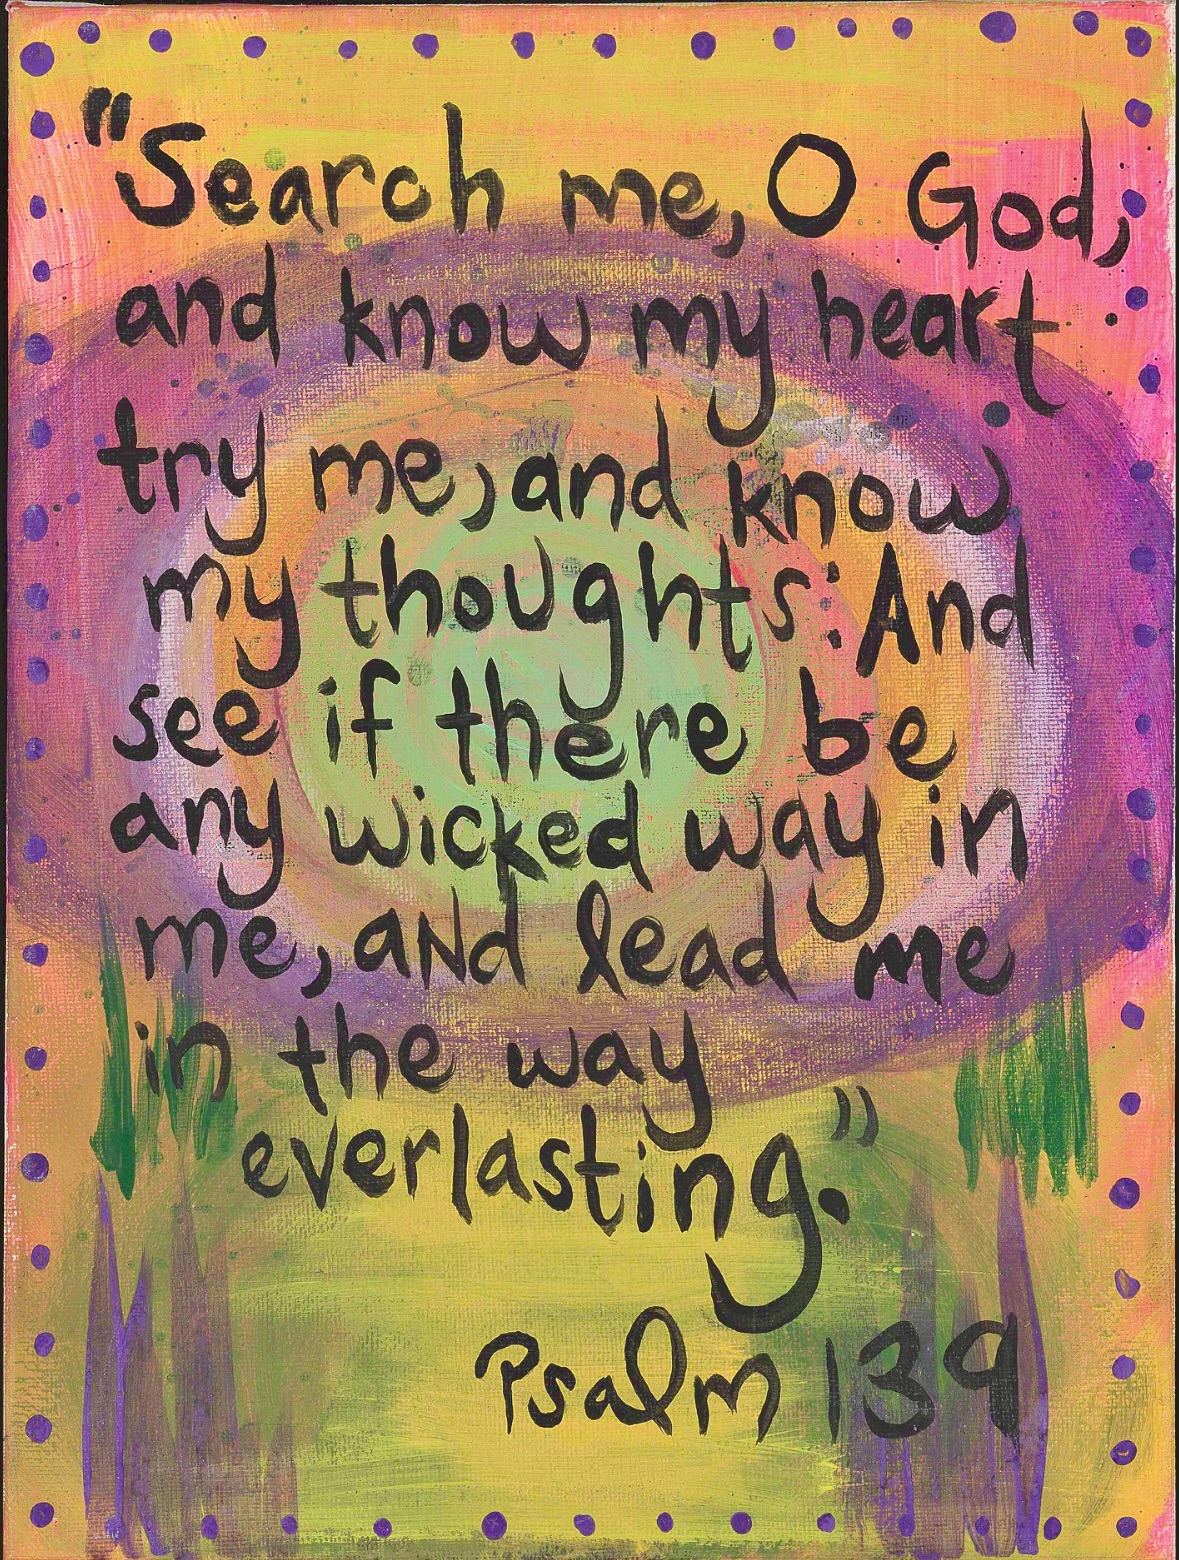 "Search me, O God,
and know my heart
try me, and know
my thoughts: And
see if there be
any wicked way in
me, aNd lead me
in the way
everlasting."
Psalm 139